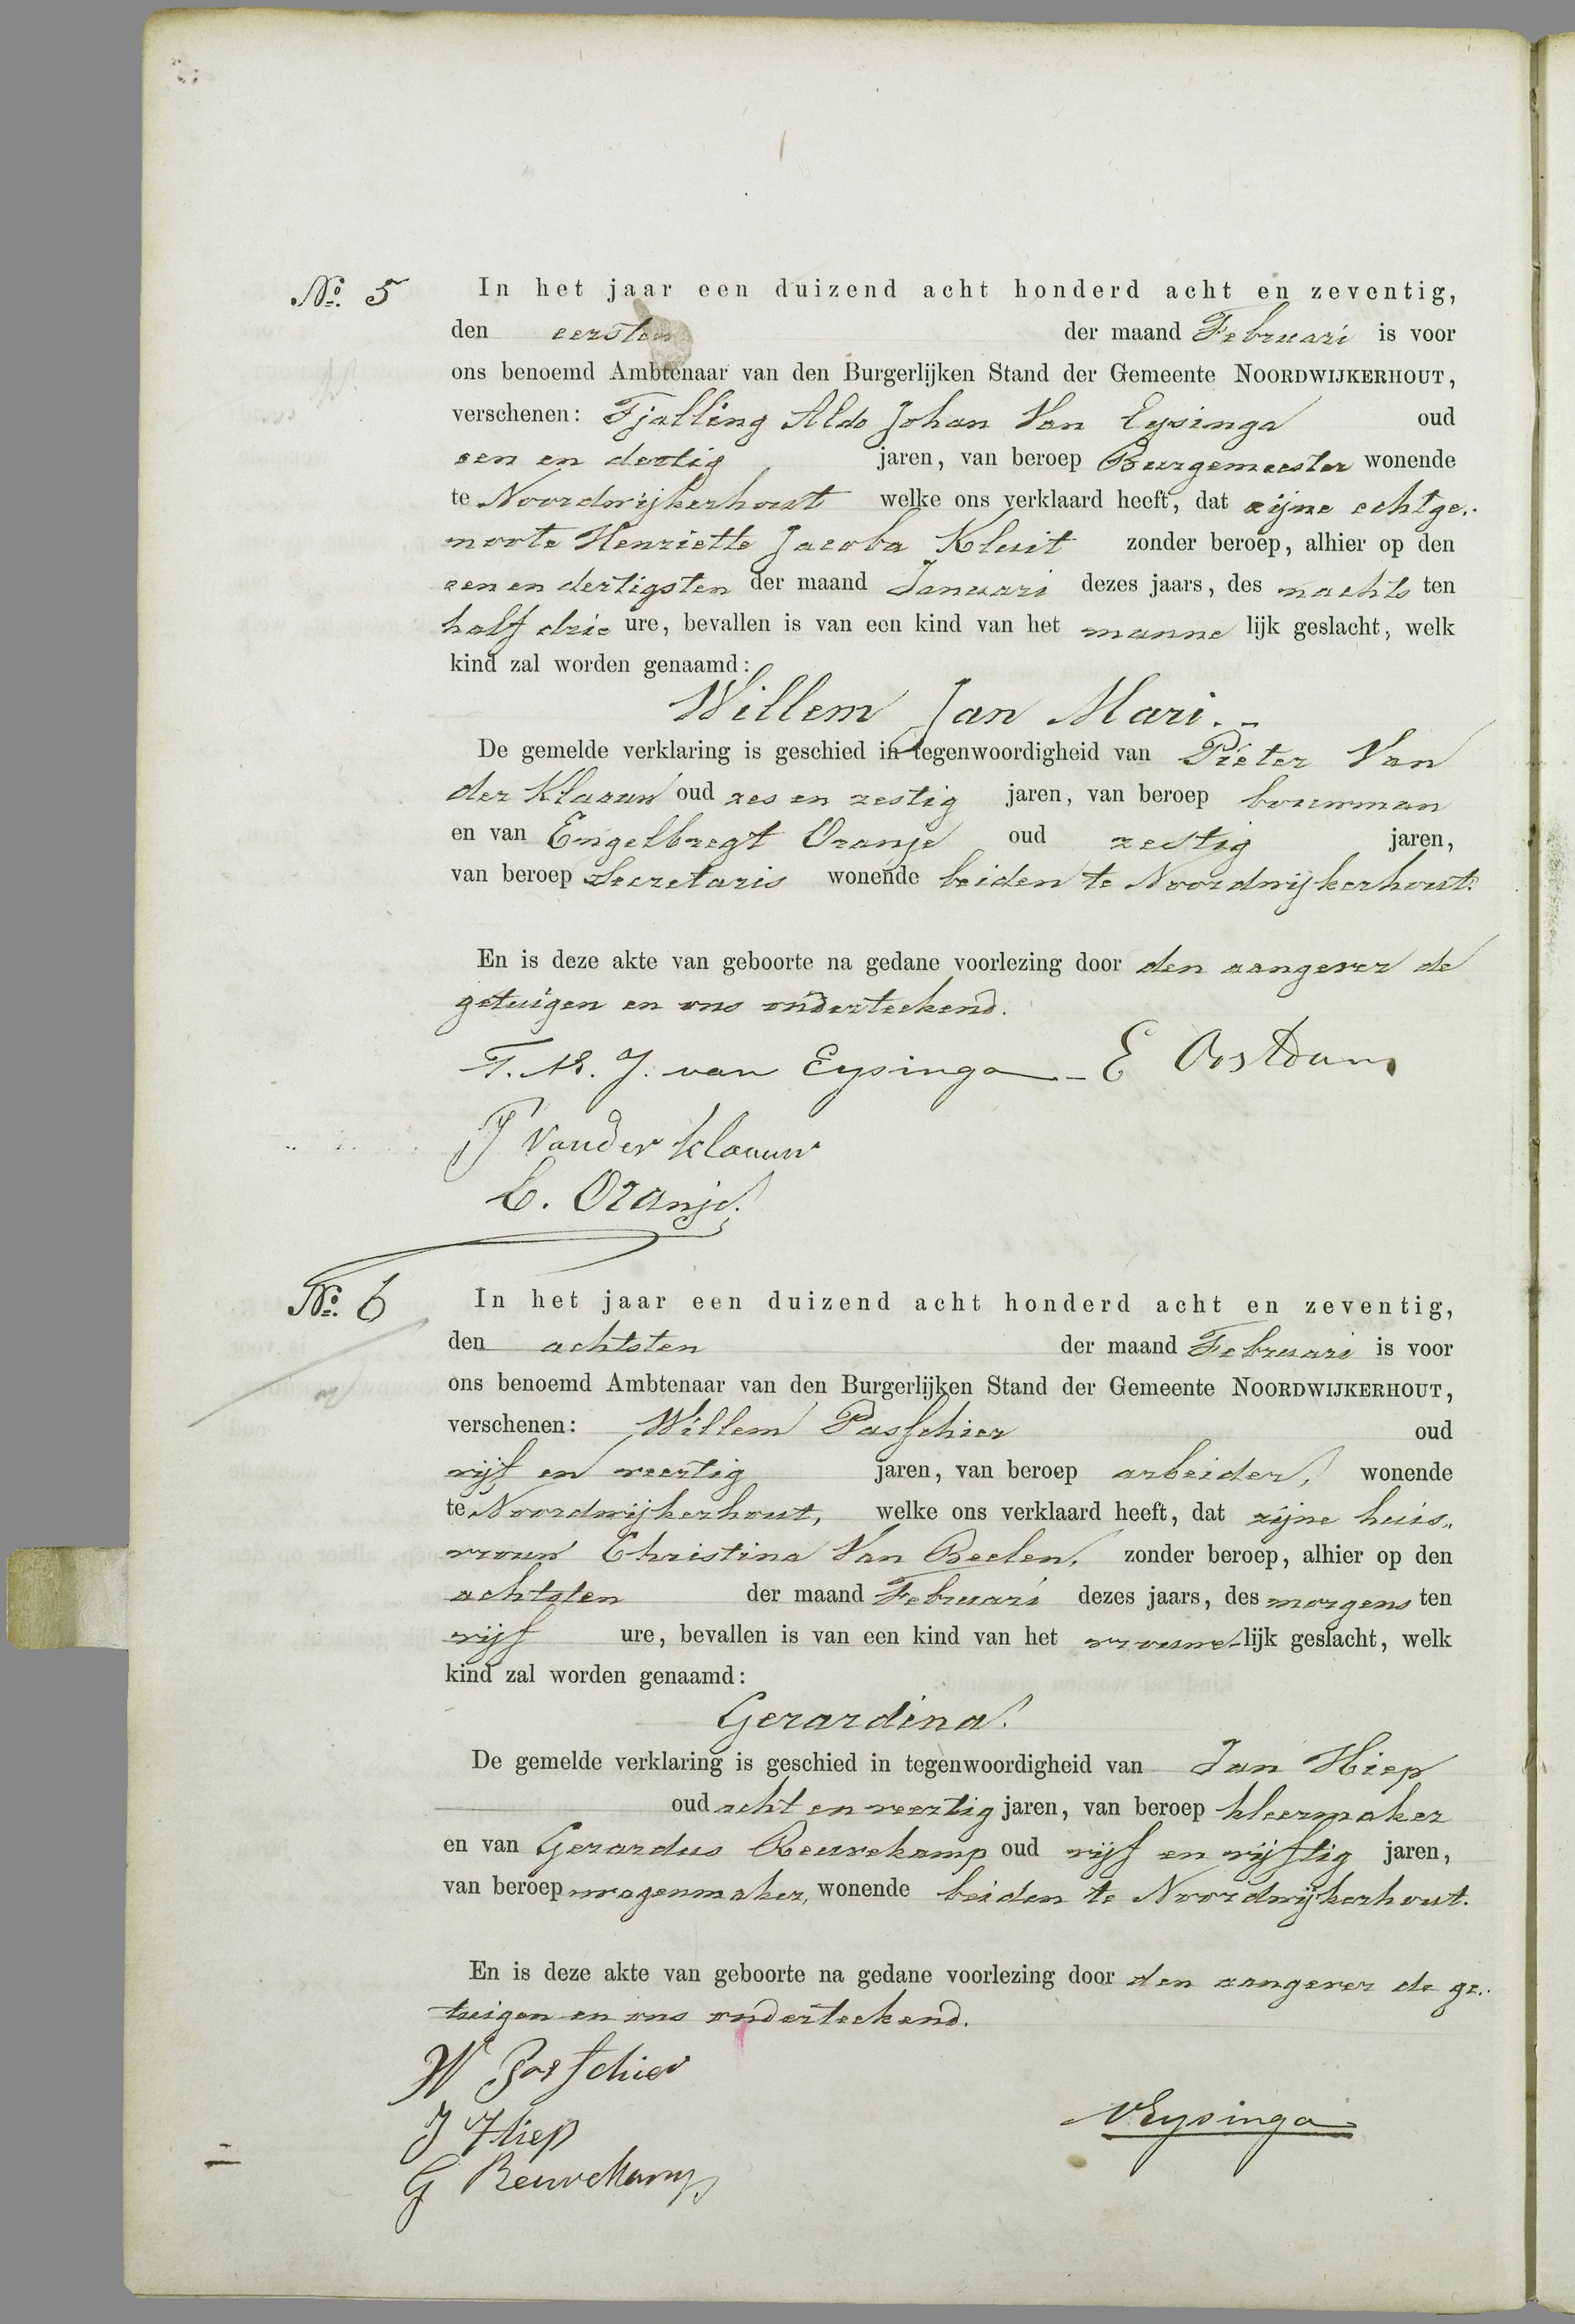 No. 5 In het jaar een duizend acht honderd acht en zeventig,
den eersten der maand Februari is voor
ons benoemd Ambtenaar van den Burgerlijken Stand der Gemeente NOORDWIJKERHOUT,
verschenen: Tjalling Aldo Johan Van Eysinga oud
een en dertig jaren, van beroep Burgemeester wonende
te Noordwijkerhout welke ons verklaard heeft, dat zijne echtge„
noote Henriette Jacoba Kluit zonder beroep, alhier op den
een en dertigsten der maand Januari dezes jaars, des nachts ten
half drie ure, bevallen is van een kind van het manne lijk geslacht, welk
kind zal worden genaamd:
Willem Jan Mari.
De gemelde verklaring is geschied in tegenwoordigheid van Pieter Van
der Klaauw oud zes en zestig jaren, van beroep bouwman
en van Engelbregt Oranje oud zestig jaren,
van beroep Secretaris wonende beiden te Noordwijkerhout.
En is deze akte van geboorte na gedane voorlezing door den aangever de
getuigen en ons onderteekend.
T. A. J. van Eysinga E Oostdam
P van der Klaauw
E. Oranje.
No. 6 In het jaar een duizend acht honderd acht en zeventig,
den achtsten der maand Februari is voor
ons benoemd Ambtenaar van den Burgerlijken Stand der Gemeente NOORDWIJKERHOUT,
verschenen: Willem Passchier oud
vijf en veertig jaren, van beroep arbeider, wonende
te Noordwijkerhout, welke ons verklaard heeft, dat zijne huis„
vrouw Christina Van Beelen, zonder beroep, alhier op den
achtsten der maand Februari dezes jaars, des morgens ten
vijf ure, bevallen is van een kind van het vrouwe-lijk geslacht, welk
kind zal worden genaamd:
Gerardina.
De gemelde verklaring is geschied in tegenwoordigheid van Jan Hiep
oud acht en veertig jaren, van beroep kleermaker
en van Gerardus Reuvekamp oud vijf en vijftig jaren,
van beroep wagenmaker, wonende beiden te Noordwijkerhout.
En is deze akte van geboorte na gedane voorlezing door den aangever de ge„
tuigen en ons onderteekend.
W Passchier
J Hiep
VEysinga
G Reuvekamp